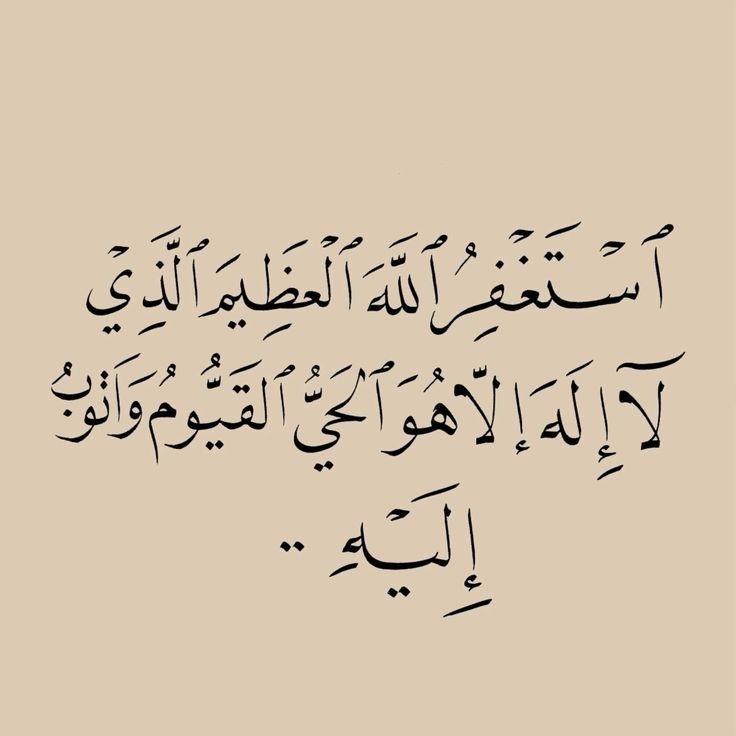 ٱسْتَغْفِرُ ٱللَّهَ ٱلْعَظِيمَ ٱلَّذِيْ
لَآ إِلَهَ إلّا هُوَ ٱلحَيُّ ٱلقَيُّومُ وَاَتُوبُ
إِلَيْهِ ..